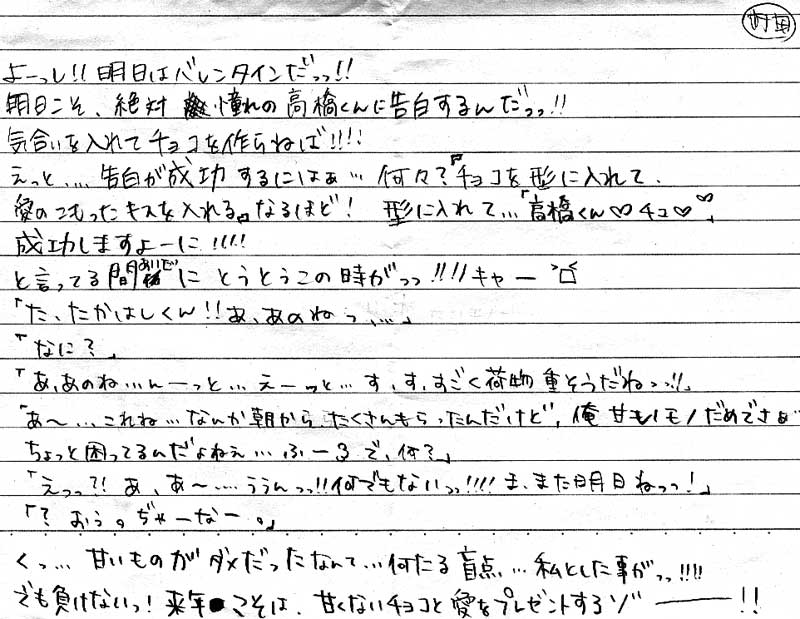 よーっし!!明日はバレンタインだっっ!!
明日こそ、絶対憧れの高橋くんに告白するんだっっ!!
気合いを入れてチョコを作らねば!!!!
えっと....告白が成功するにはぁ...何々?『チョコを形に入れて、
愛のこもったキスを入れる』なるほど! 形に入れて...「高橋くん♡チュ♡♡」
成功しますよーに!!!!
と言ってる間あいだにとうとうこの時がっっ!!!!キャー
「た、たかはしくん!!あ、あのねっ....」
「なに?」
「あ、あのね...んーっと...えーっと...す、す、すごく荷物重そうだねっっ!!」
「あ〜...これね...なんか朝から、たくさんもらったんだけど、俺甘いモノだめでさぁ
ちょっと困ってるんだよねぇ...ふーるで、何?」
「えっっ?!あ、あ〜....ううんっっ!!何でもないっっ!!!!ま、また明日ねっっ!」
「?おぅ。ぢゃーなー。」
くっ...甘いものがダメだったなんて...何たる盲点...私とした事がっっ!!!!
でも負けないっ!来年こそは、甘くないチョコと愛をプレゼントするゾ――!!